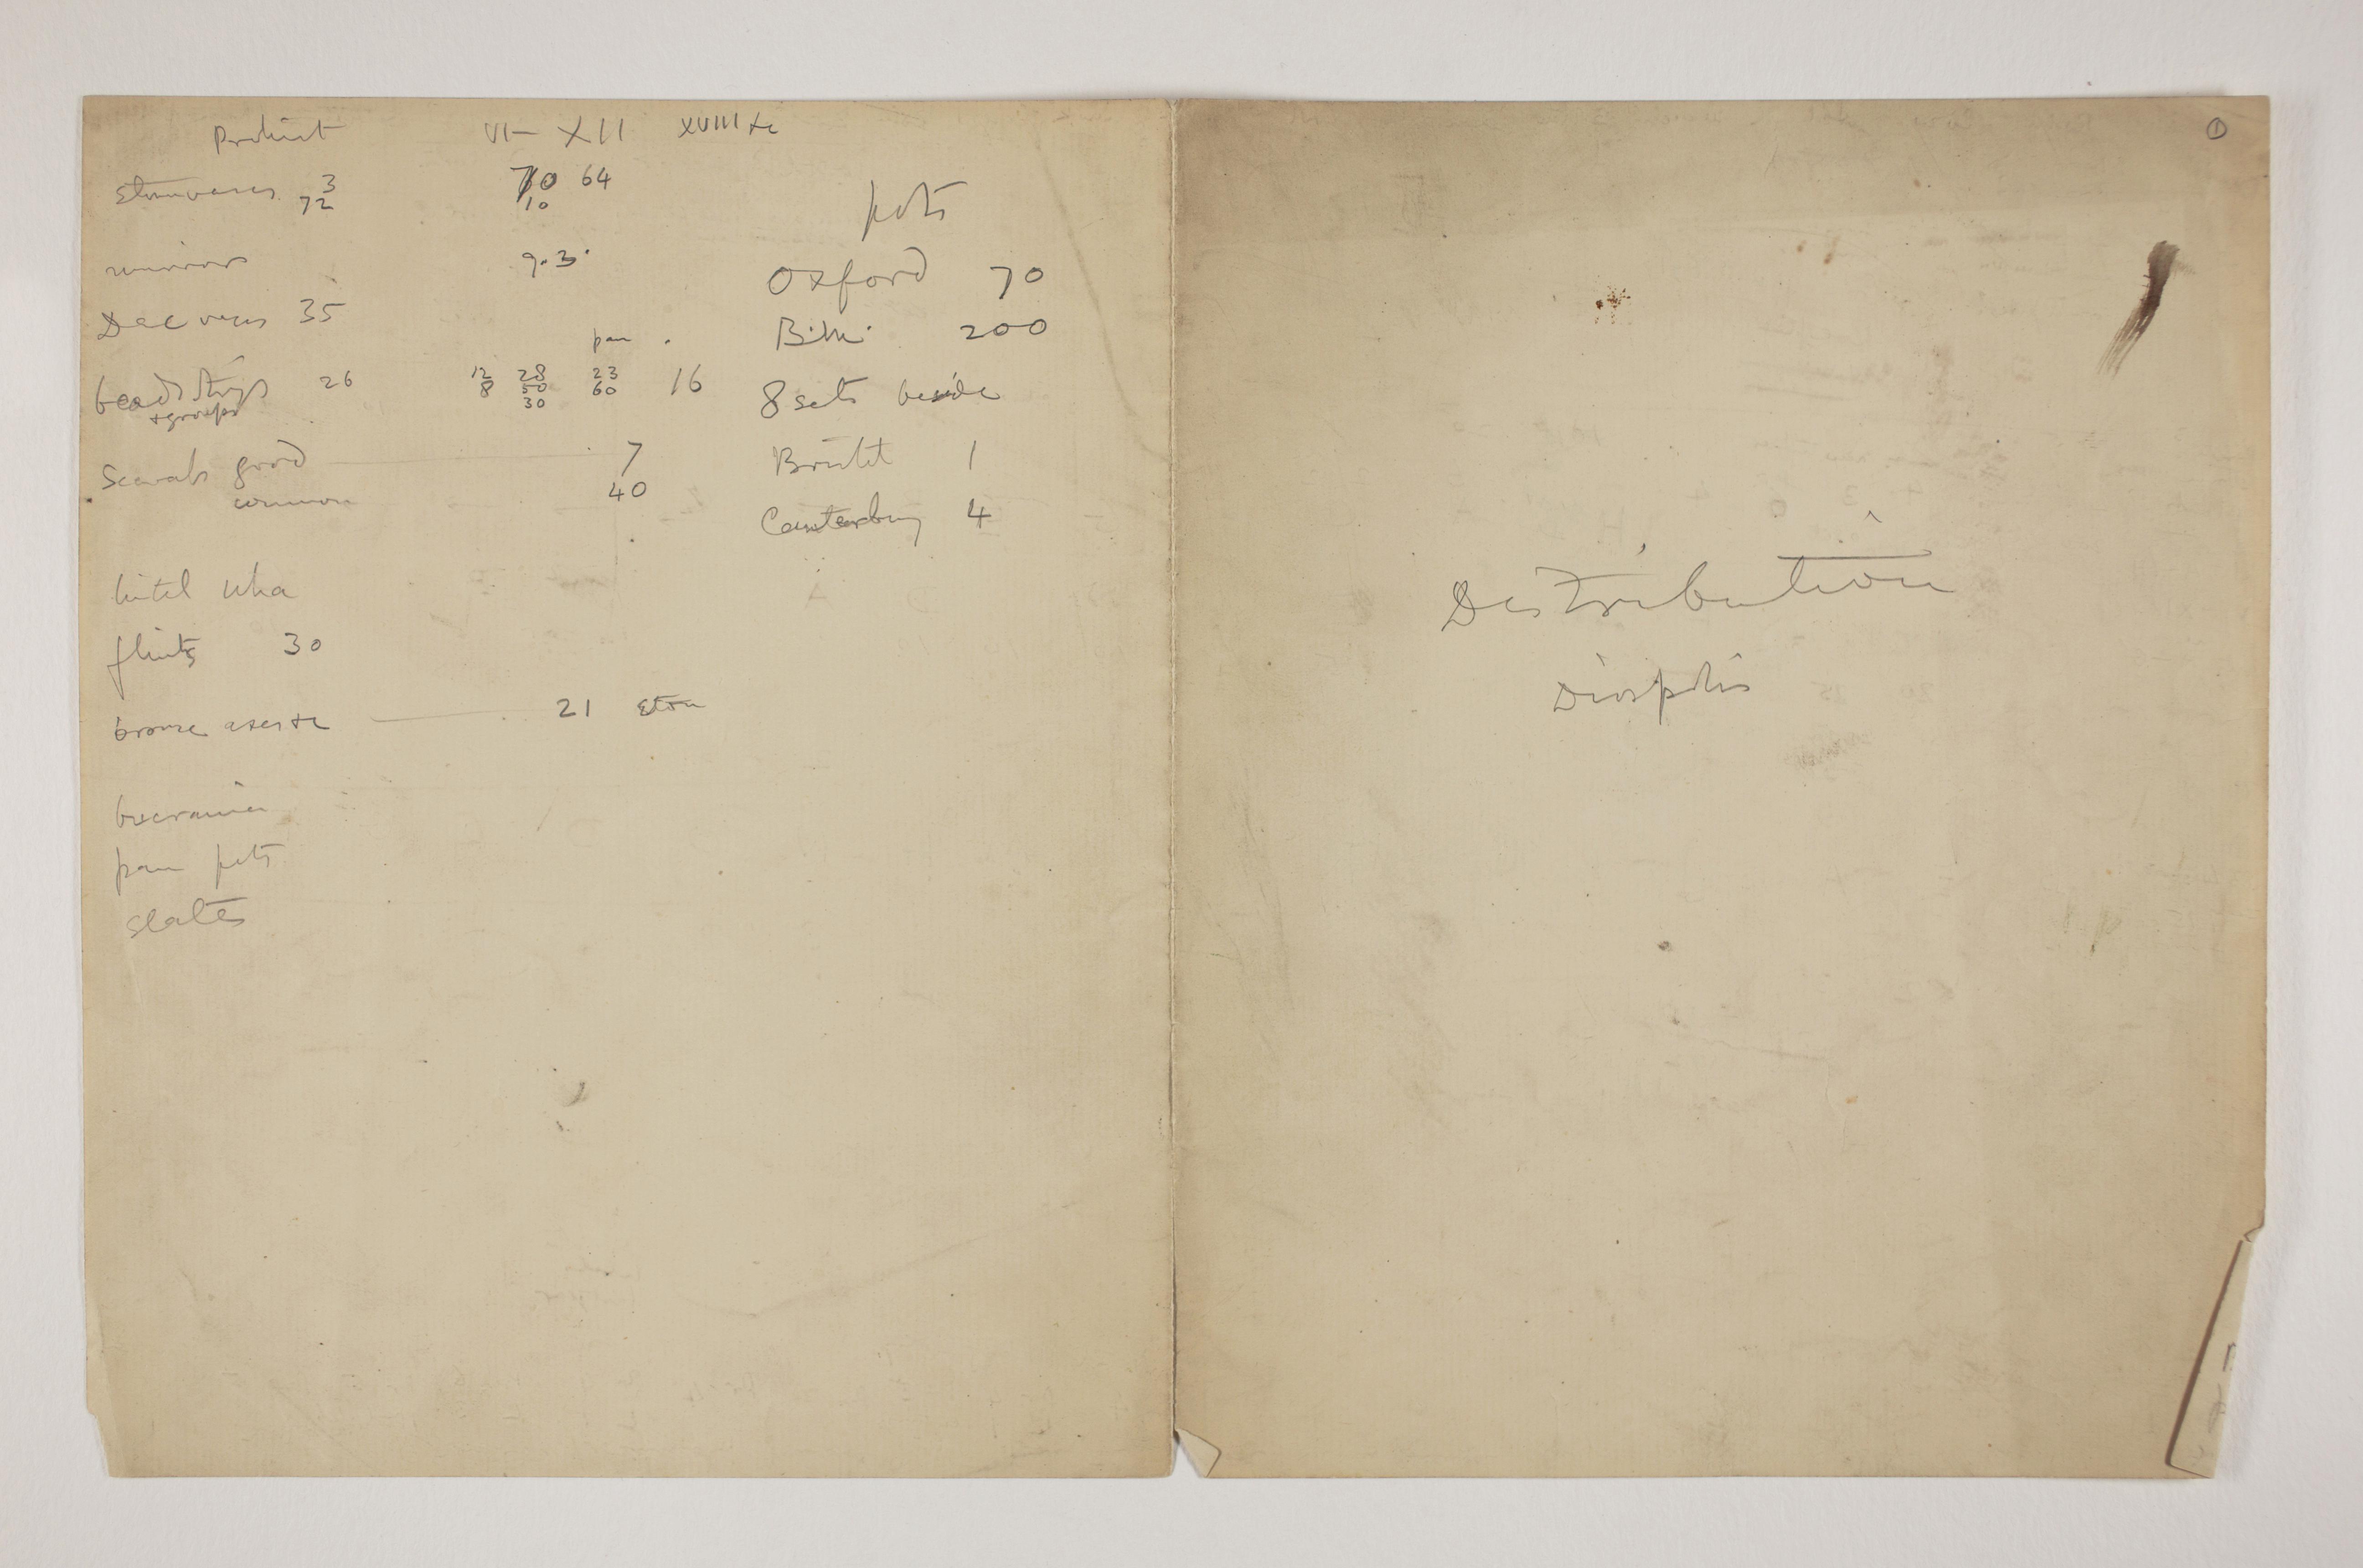 Prehist VI - XII XVIII &c
Stone vases 3 70 64
72 10
mirrors 9. 3.
Dec vases 35
pan
beads strings 26 12 28 23 16
+ groups 8 50 60
30
Scarabs good 7
common 40
lintel Uha
flints 30
bronze axes &c 21 Eton
bucrania
pan pots
slates
pots
Oxford 70
B.M. 200
8 sets beside
Bristol 1
Canterbury 4
1
Distribution
Diospolis